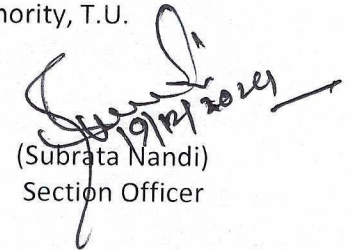 hority, T.U.
19/12/2024
(Subrata Nandi)
Section Officer